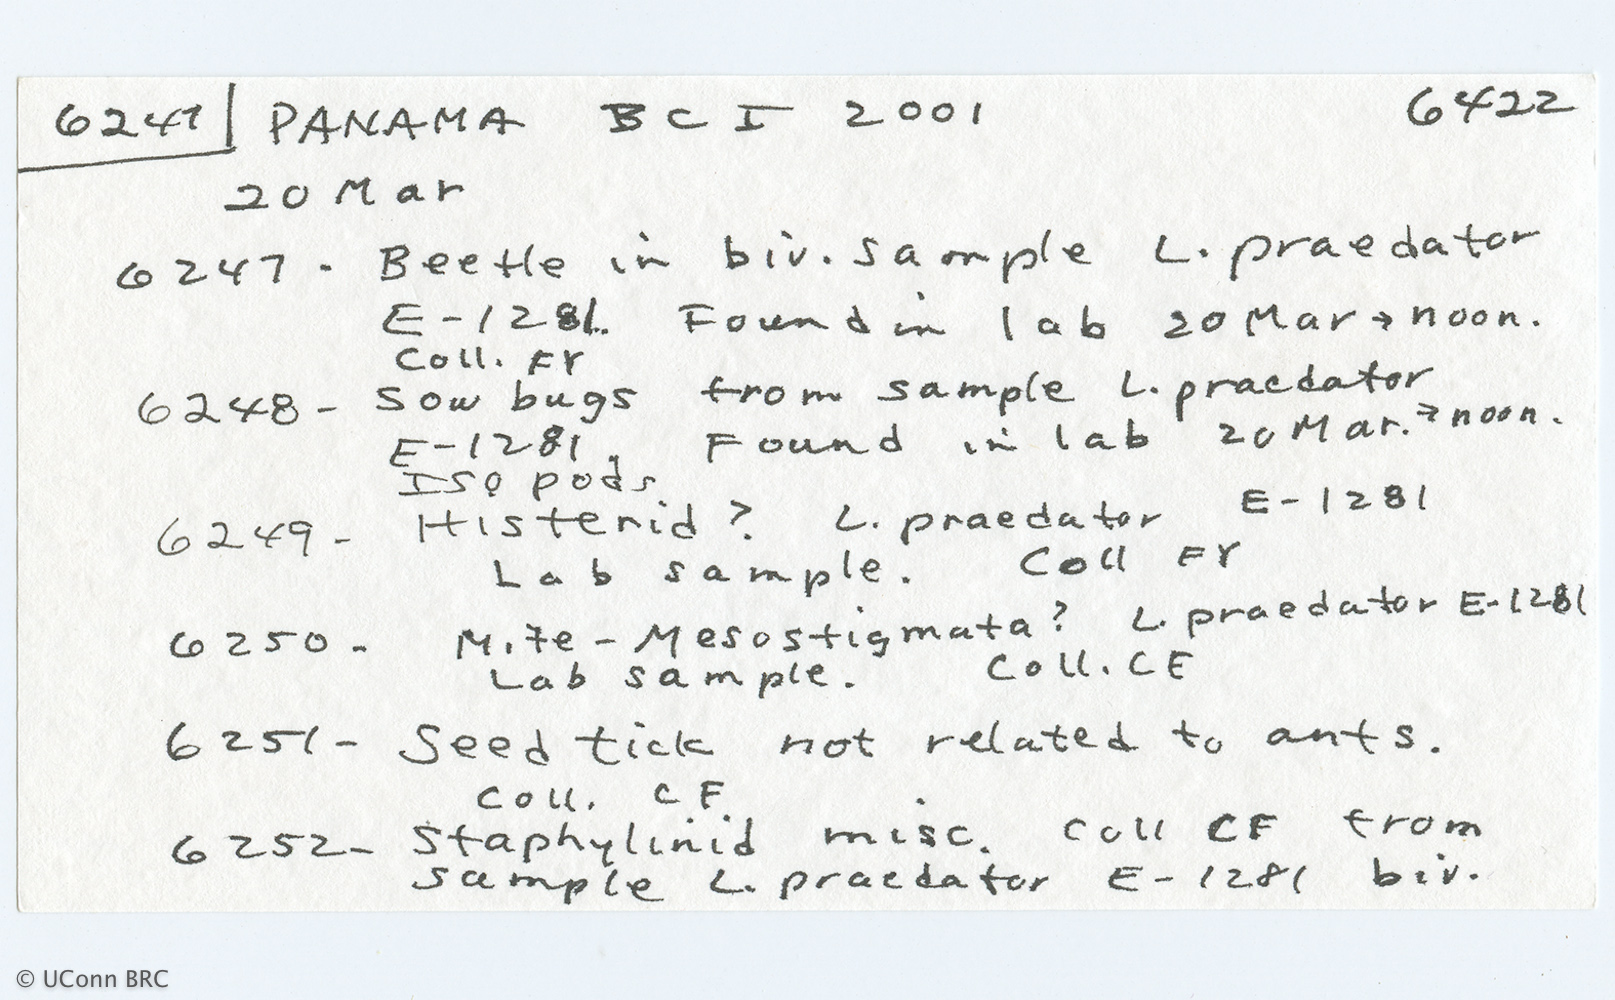 6247 PANAMA BCI 2001 6422
20 Mar
6247 - Beetle in biv. sample L. praedator
E-1281. Found in lab 20 Mar → noon.
Coll. Fr
6248 - Sow bugs from sample L. praedator
E-1281. Found in lab 20 Mar. → noon.
Isopods
6249 - Histerid? L. praedator E-1281
Lab sample. Coll Fr
6250 - Mite - Mesostigmata? L. praedator E-1281
Lab sample. Coll. CF
6251 - Seed tick not related to ants.
Coll. CF
6252 - Staphylinid misc. Coll CF from
sample L. praedator E-1281 biv.
© UConn BRC